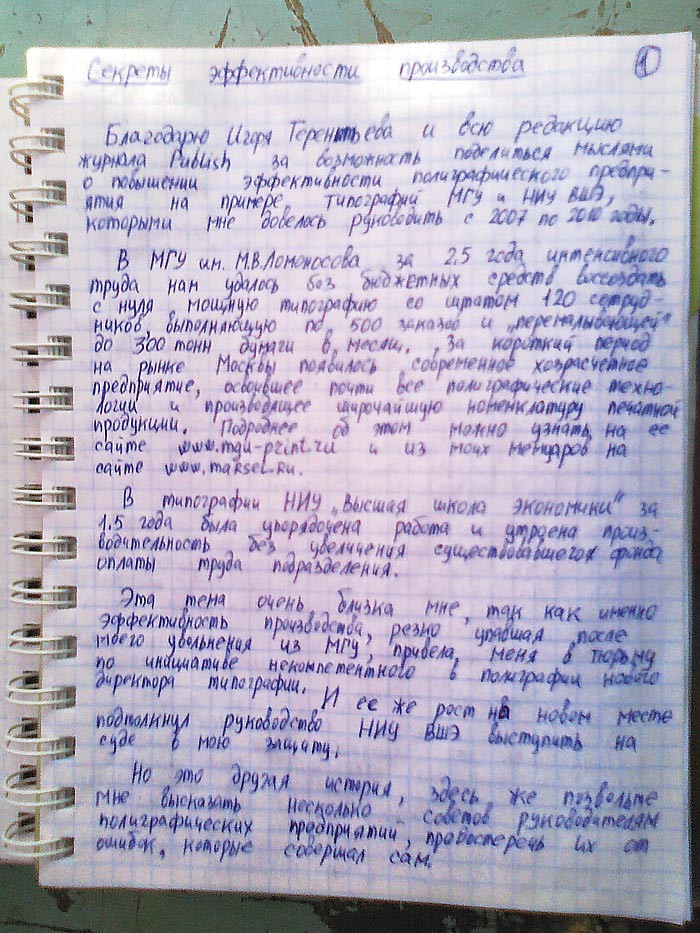 Секреты эффективности производства 1
Благодарю Игоря Терентьева и всю редакцию
журнала Publish за возможность поделиться мыслями
о повышении эффективности полиграфического предпри-
ятия на примере типографий МГУ и НИУ ВШЭ,
которыми мне довелось руководить с 2007 по 2010 годы.
В МГУ им. М.В.Ломоносова за 2.5 года интенсивного
труда нам удалось без бюджетных средств воссоздать
с нуля мощную типографию со штатом 120 сотруд-
ников, выполняющую по 500 заказов и „перемалывающей"
до 300 тонн бумаги в месяц. За короткий период
на рынке Москвы появилось современное хозрасчетное
предприятие, освоившее почти все полиграфические техно-
логии и производящее широчайшую номенклатуру печатной
продукции. Подробнее об этом можно узнать на ее
сайте www.mgu-print.ru и из моих мемуаров на
сайте www.maksel.ru.
В типографии НИУ „Высшая школа экономики" за
1.5 года была упорядочена работа и утроена произ-
водительность без увеличения существовавшего фонда
оплаты труда подразделения.
Эта тема очень близка мне, так как именно
эффективность производства, резко упавшая после
моего увольнения из МГУ, привела меня в тюрьму
по инициативе некомпетентного в полиграфии нового
директора типографии. И ее же рост на новом месте
подтолкнул руководство НИУ ВШЭ выступить на
суде в мою защиту.
Но это другая история, здесь же позвольте
мне высказать несколько советов руководителям
полиграфических предприятий, предостеречь их от
ошибок, которые совершал сам.